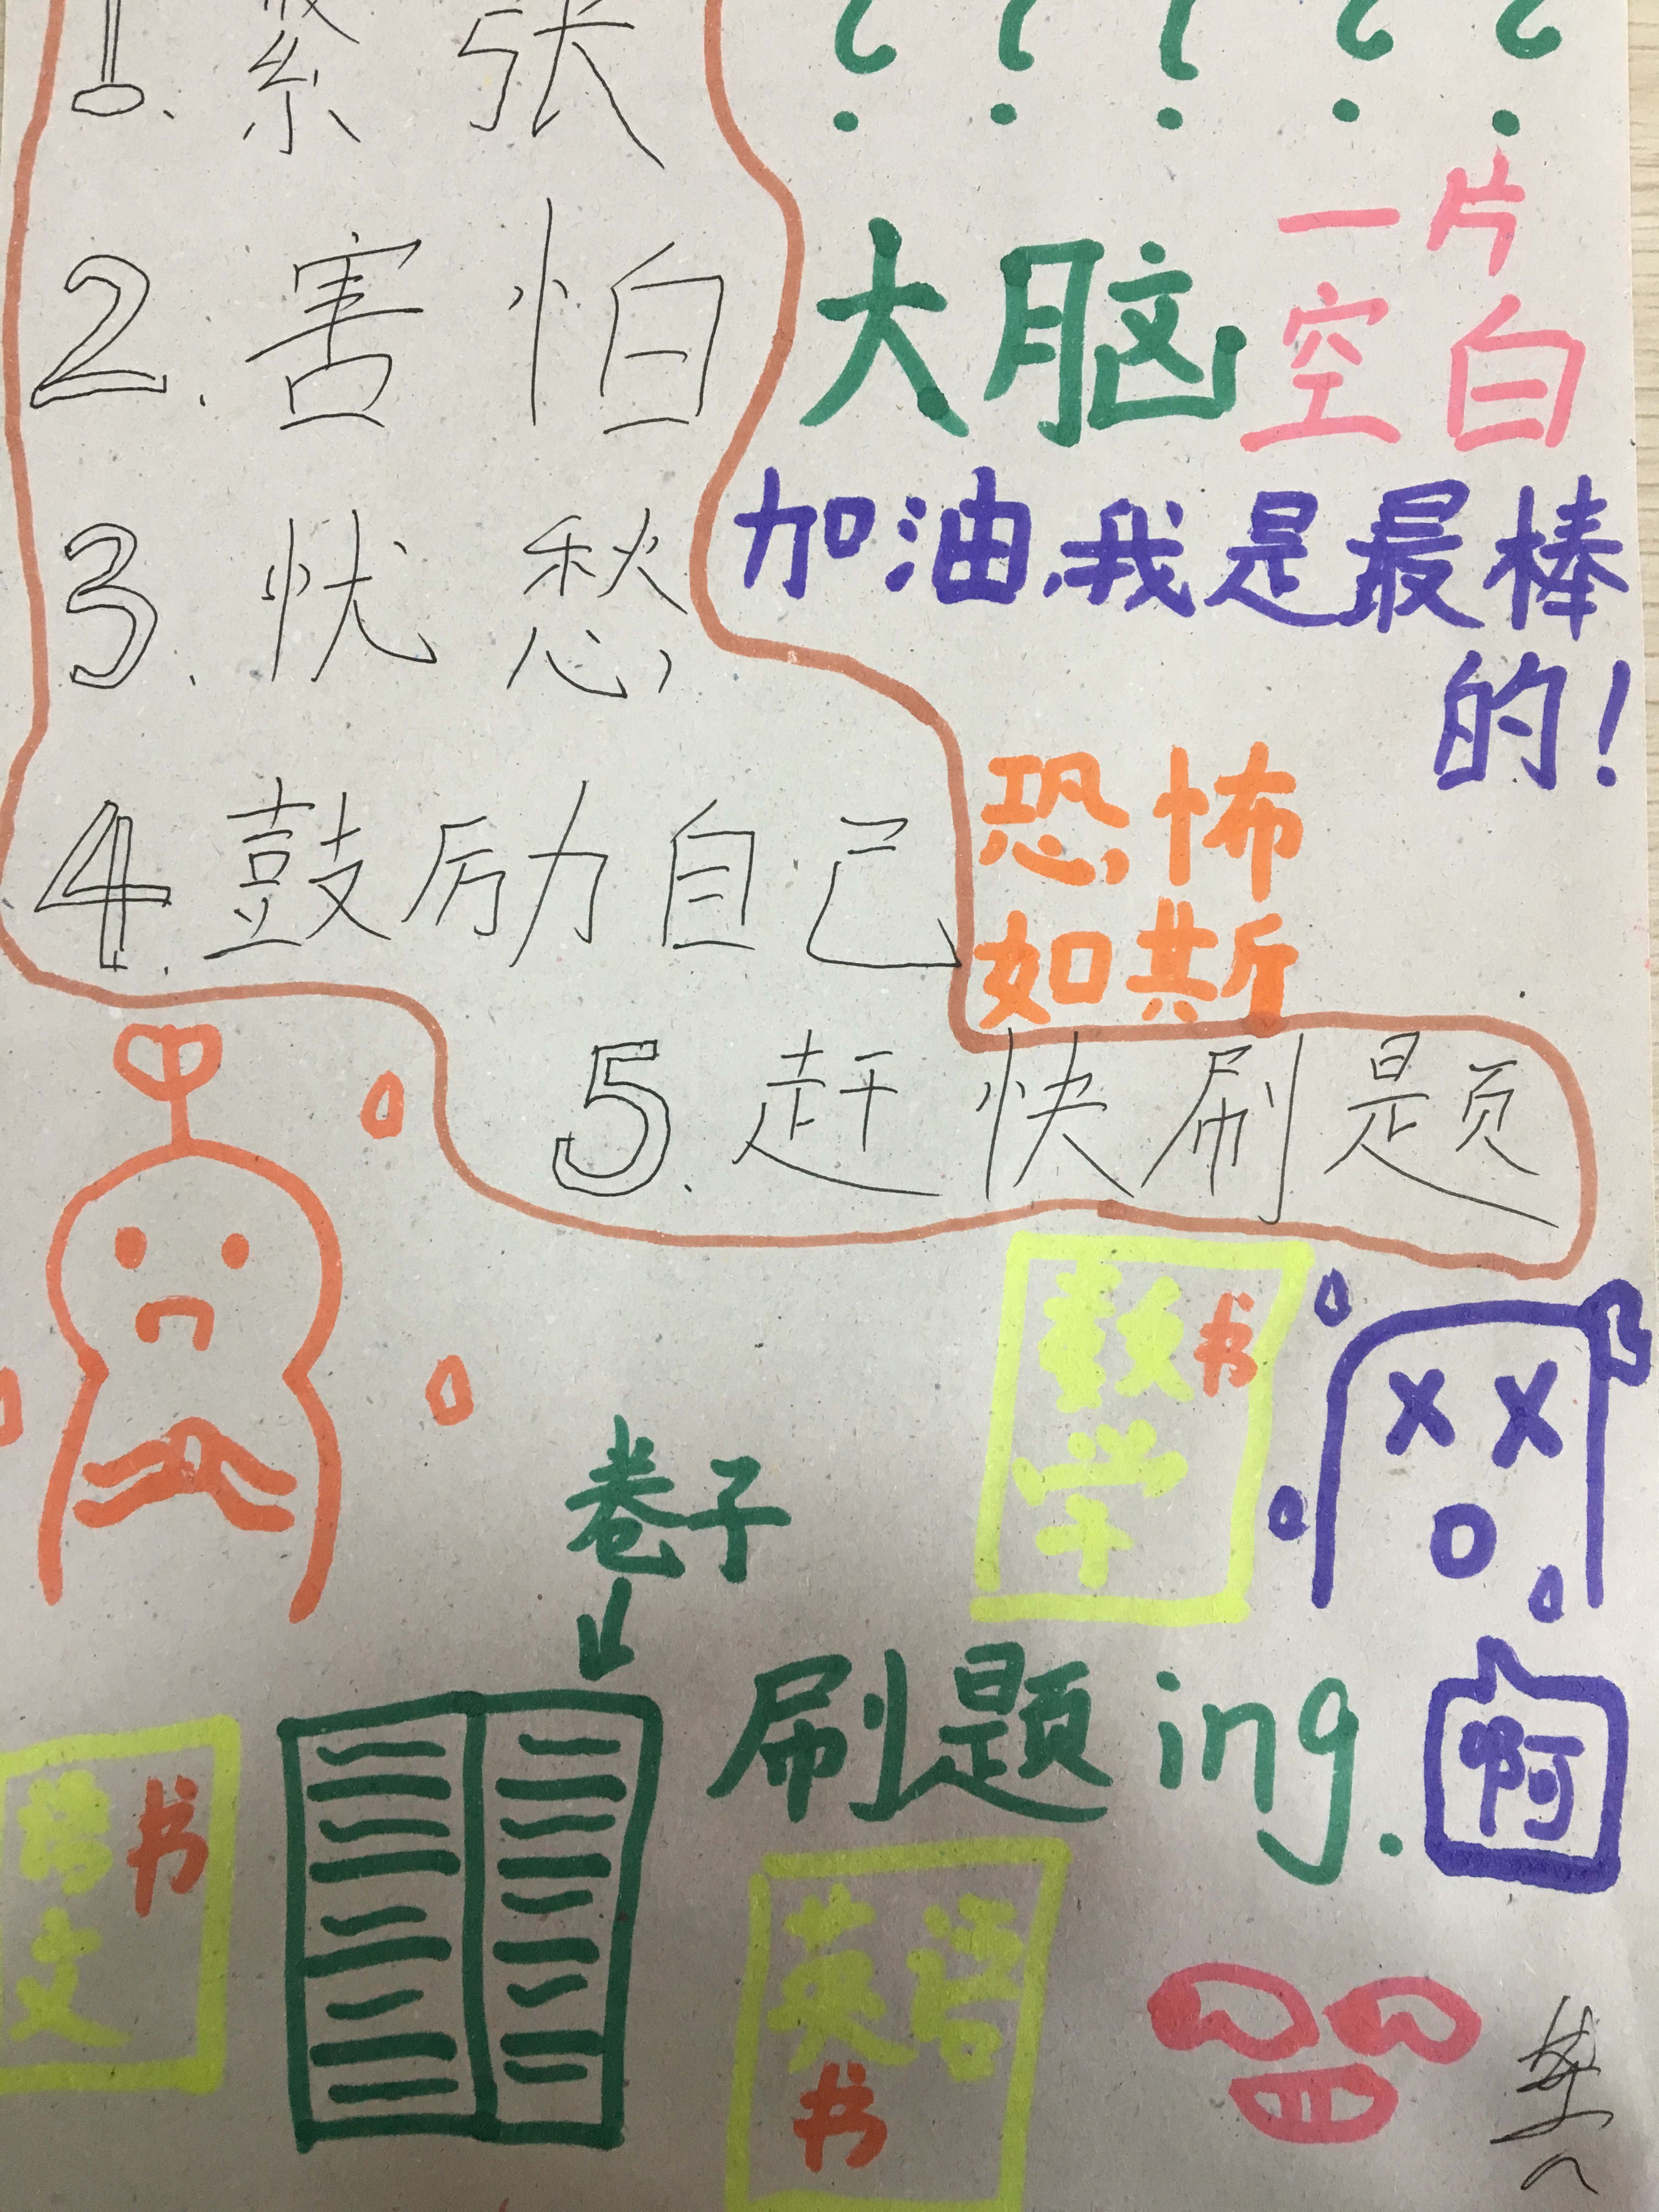 1.紧张
? ? ? ? ?
2.害怕
大脑
一片
空白
3.忧愁
加油,我是最棒
的!
4.鼓励自己
恐怖
如斯
5.赶快刷题
数学
书
卷子
刷题ing.
啊
语文
书
英语
书